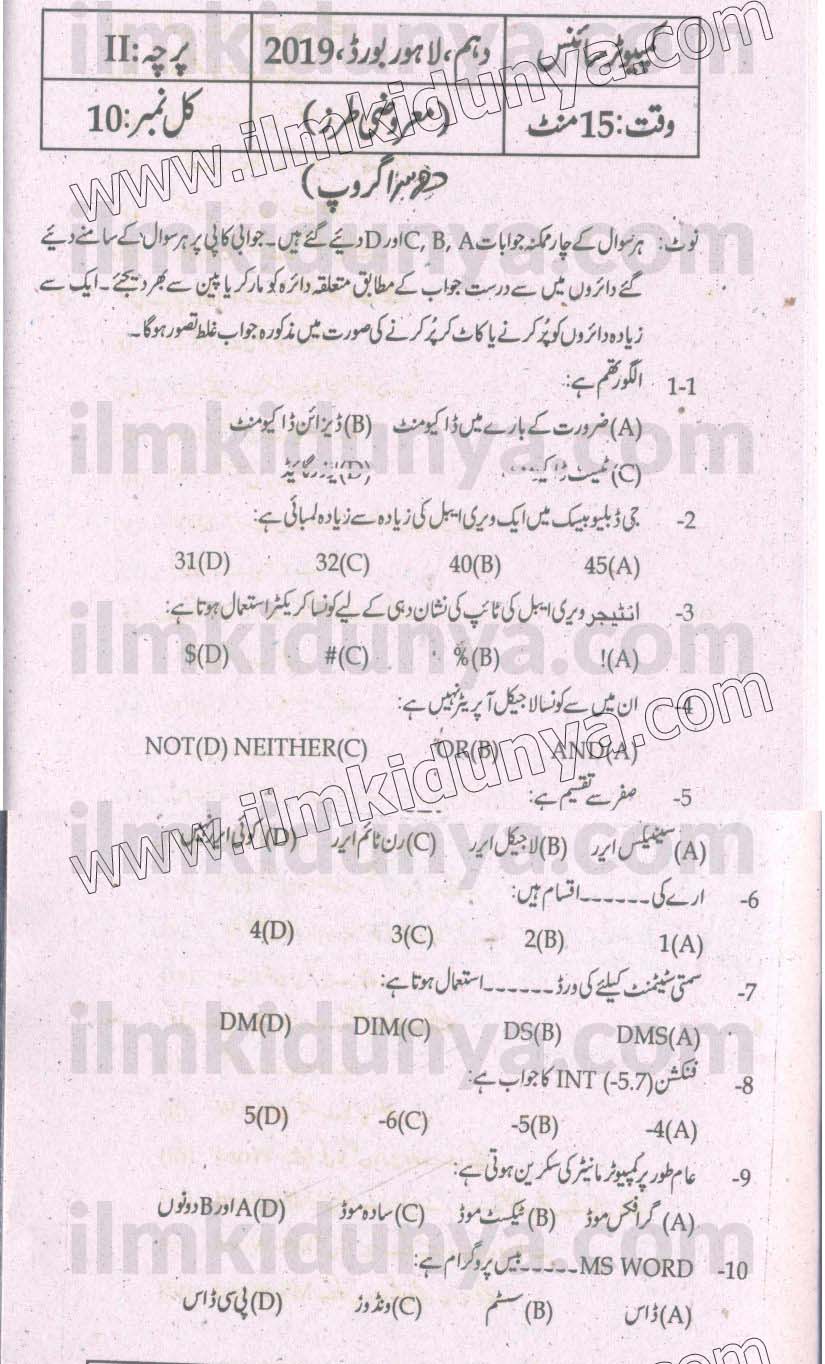 کمپیوٹر سائنس دہم، لاہور بورڈ، 2019 پرچہ: II
وقت: 15 منٹ (معروضی طرز) کل نمبر: 10
گروپ)
نوٹ: ہر سوال کے چار ممکنہ جوابات C, B, A اور D دیئے گئے ہیں۔ جوابی کاپی پر ہر سوال کے سامنے دیئے
گئے دائروں میں سے درست جواب کے مطابق متعلقہ دائرہ کو مارکر یا پین سے بھر دیجئے۔ ایک سے
زیادہ دائروں کو پُر کرنے یا کاٹ کر پُر کرنے کی صورت میں مذکورہ جواب غلط تصور ہوگا۔
1-1 الگورتھم ہے:
(A) ضرورت کے بارے میں ڈاکیومنٹ (B) ڈیزائن ڈاکیومنٹ
(C) ٹیسٹ ڈاکیومنٹ (D) یوزر گائیڈ
2- جی ڈبلیو بیسک میں ایک ویری ایبل کی زیادہ سے زیادہ لمبائی ہے:
45(A) 40(B) 32(C) 31(D)
3- انٹیجر ویری ایبل کی ٹائپ کی نشان دہی کے لیے کونسا کریکٹر استعمال ہوتا ہے:
!(A) %(B) #(C) $(D)
4- ان میں سے کونسا لاجیکل آپریٹر نہیں ہے:
AND(A) OR(B) NEITHER(C) NOT(D)
5- صفر سے تقسیم ہے:
(A) سینٹیکس ایرر (B) لاجیکل ایرر (C) رن ٹائم ایرر (D) کوئی ایرر نہیں
6- ارے کی ------ اقسام ہیں:
1(A) 2(B) 3(C) 4(D)
7- سمتی سٹیٹمنٹ کیلئے کی ورڈ ------ استعمال ہوتا ہے:
DMS(A) DS(B) DIM(C) DM(D)
8- فنکشن INT (-5.7) کا جواب ہے:
-4(A) -5(B) -6(C) 5(D)
9- عام طور پر کمپیوٹر مانیٹر کی سکرین ہوتی ہے:
(A) گرافکس موڈ (B) ٹیکسٹ موڈ (C) سادہ موڈ (D) A اور B دونوں
10- MS WORD ----- بیس پروگرام ہے:
(A) ڈاس (B) سسٹم (C) ونڈوز (D) پی سی ڈاس
www.ilmkidunya.com
www.ilmkidunya.com
ilmkidunya.com
ilmkidunya.com
ilmkidunya.com
ilmkidunya.com
ilmkidunya.com
ilmkidunya.com
ilmkidunya.com